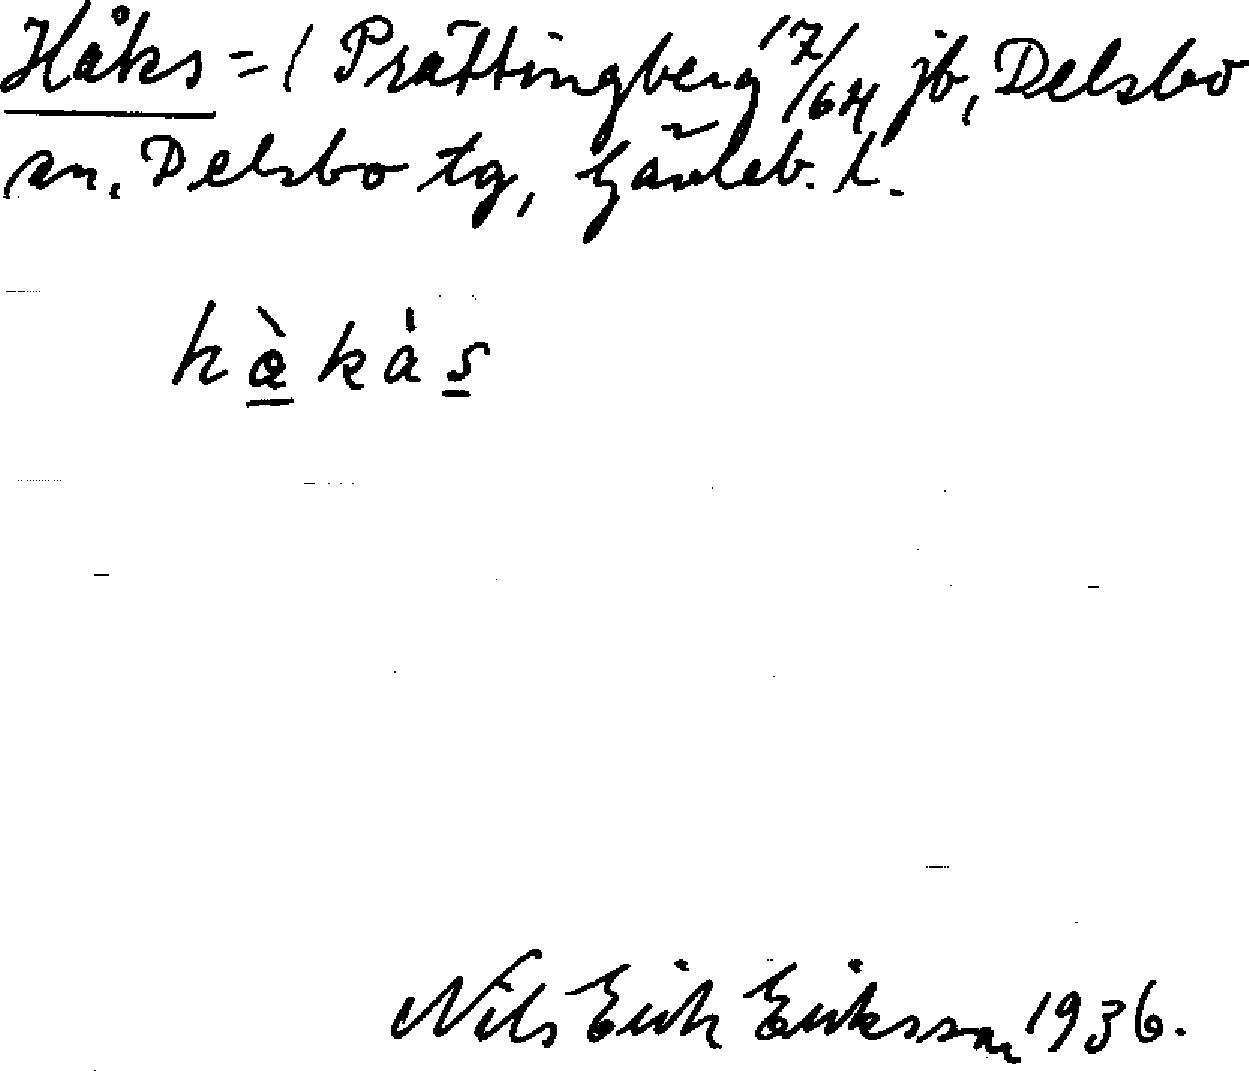 Håks = (Prättingberg 17/64 jb, Delsbo
sn, Delsbo tg, Gävleb. l.
hàkás
Nils Erik Eriksson 1936.